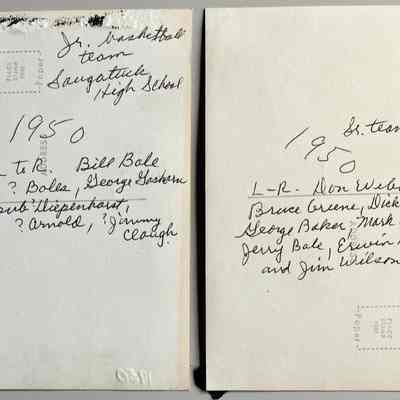 Jr. basketball
team
Saugatuck
High School
1950
L to R. Bill Bale
? Bolles, George Goshorn
Diepenhorst,
? Arnold, ? Jimmy
Clough
1950
Sr. team
1950
L-R. Don
Bruce Greene, Dick
George Baker, Mark
Jerry Bale, Erwin
and Jim Wilson